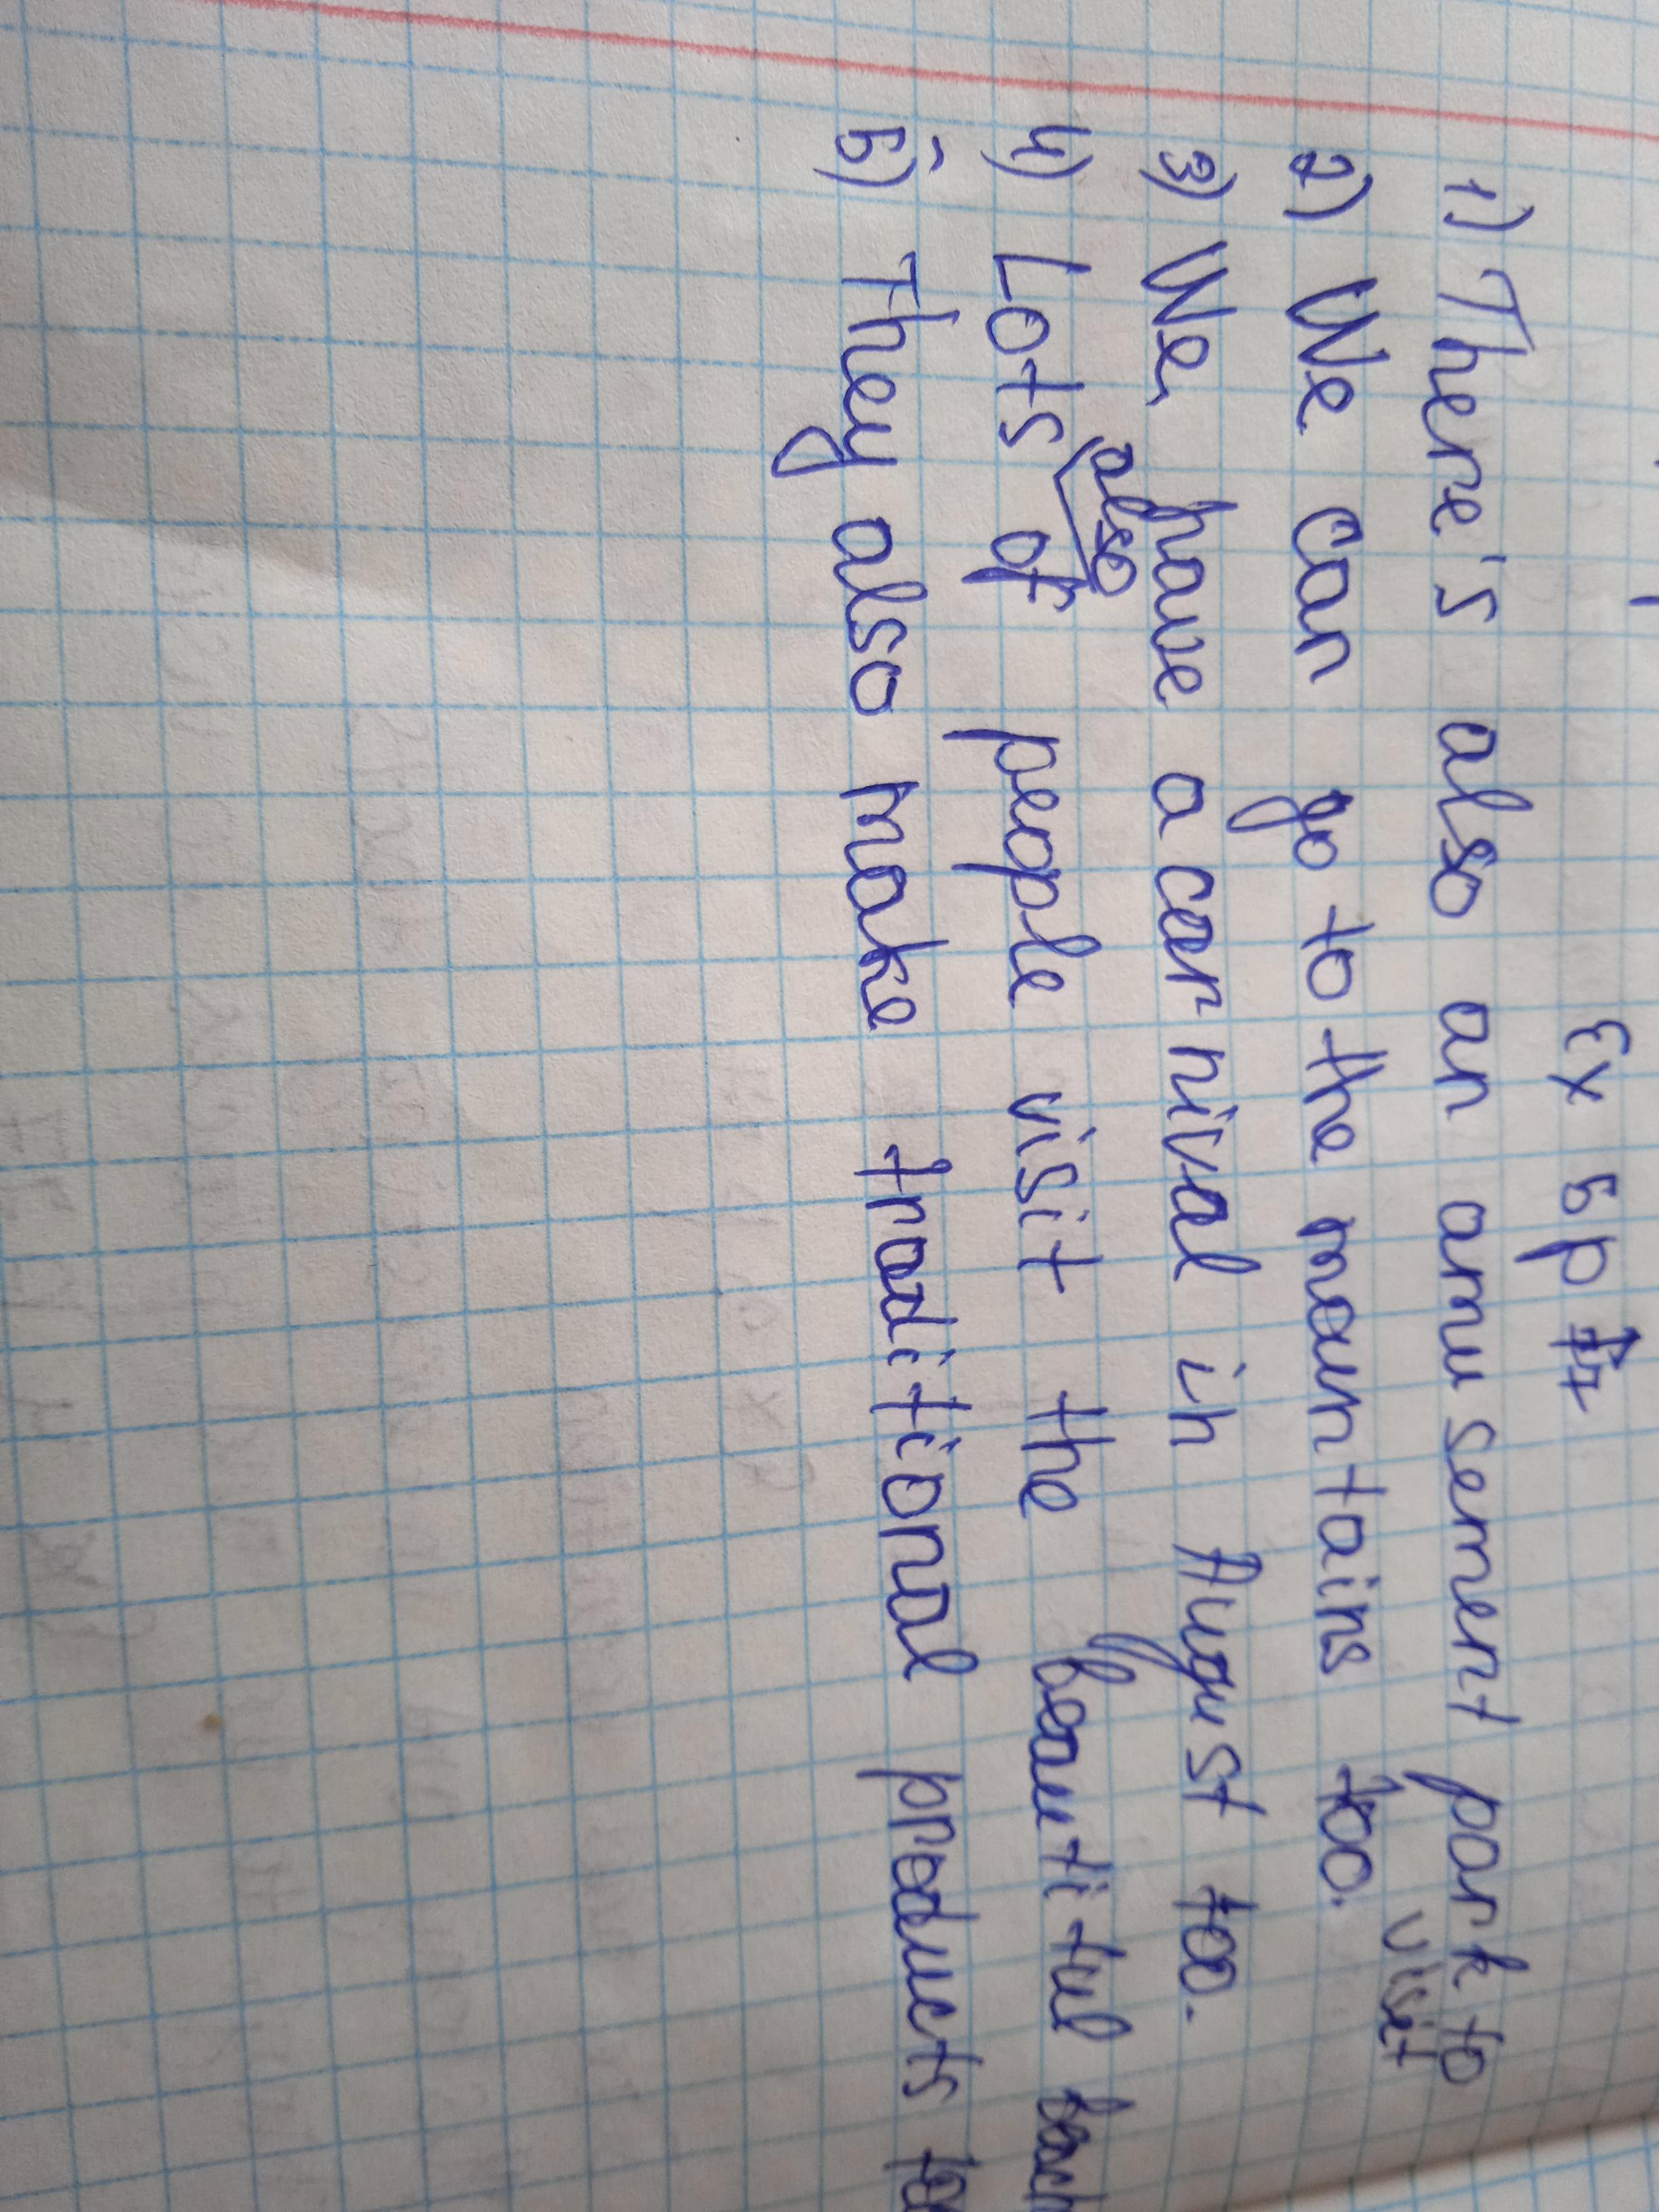 Ex 5 p
1) There's also an amusement park to
visit
2) We can go to the mountains too.
3) We, have a carnival in August too.
also
4) Lots of people visit the beautiful beach
5) They also make traditional products